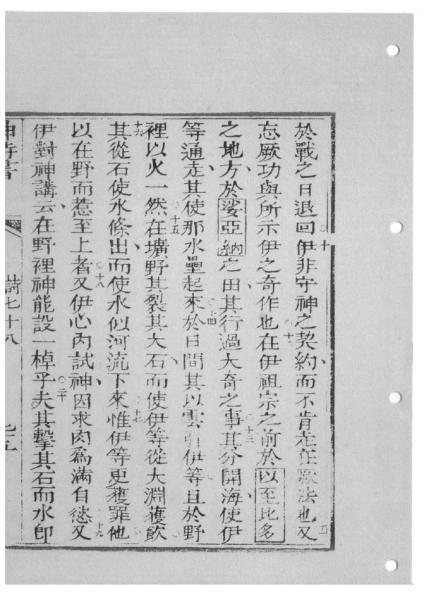 於戰之日退回伊非守神之契約而不肯走在厥法也又
忘厥功與所示伊之奇作也在伊祖宗之前於以至比多
之地方於娑亞納之田其行過大奇之事其分開海使伊
等通走其使那水壘起來於日間其以雲引伊等且於野
裡以火一然在壙野其裂其大石而使伊等從大淵獲飲
其從石使水條出而使水似河流下來惟伊等更獲罪他
以在野而惹至上者又伊心內試神因求肉為滿自慾又
伊對神講云在野裡神能設一棹乎夫其擊其石而水即
詩七十八